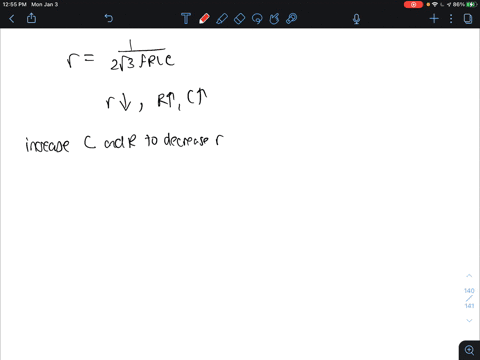 12:55 PM Mon Jan 3
86%
r = 1 / 2√3 fRLC
r↓, R↑, C↑
increase C and R to decrease r
140
141